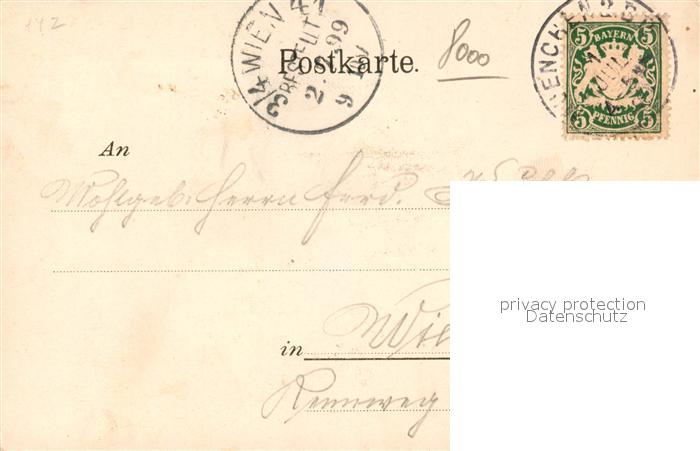 142
WIEN 41
3/4
BESTELLT
2. 99
9
Postkarte.
8000
MUENCHEN
5 BAYERN 5
5 PFENNIG 5
An
Wohlgeb: Herrn Ferd.
privacy protection
Datenschutz
in Wie
Rennweg